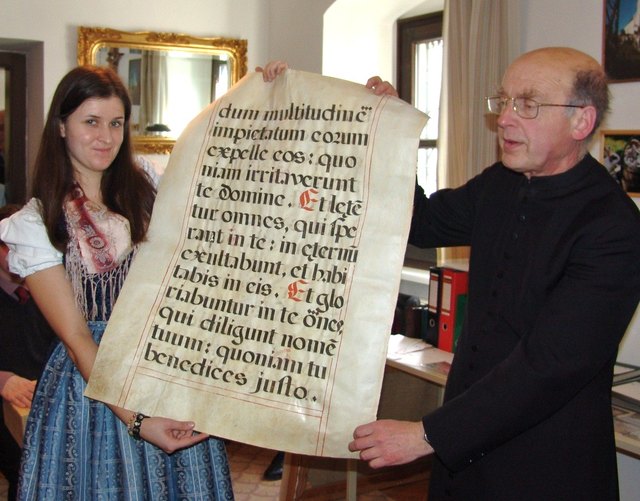 dum multitudinē
impietatum eorum
expelle eos: quo
niam irritaverunt
te domine. Et letē
tur omnes, qui spe
rant in te: in eternū
exultabunt, et habi
tabis in eis. Et glo
riabuntur in te ōnes
qui diligunt nomē
tuum: quoniam tu
benedices justo.